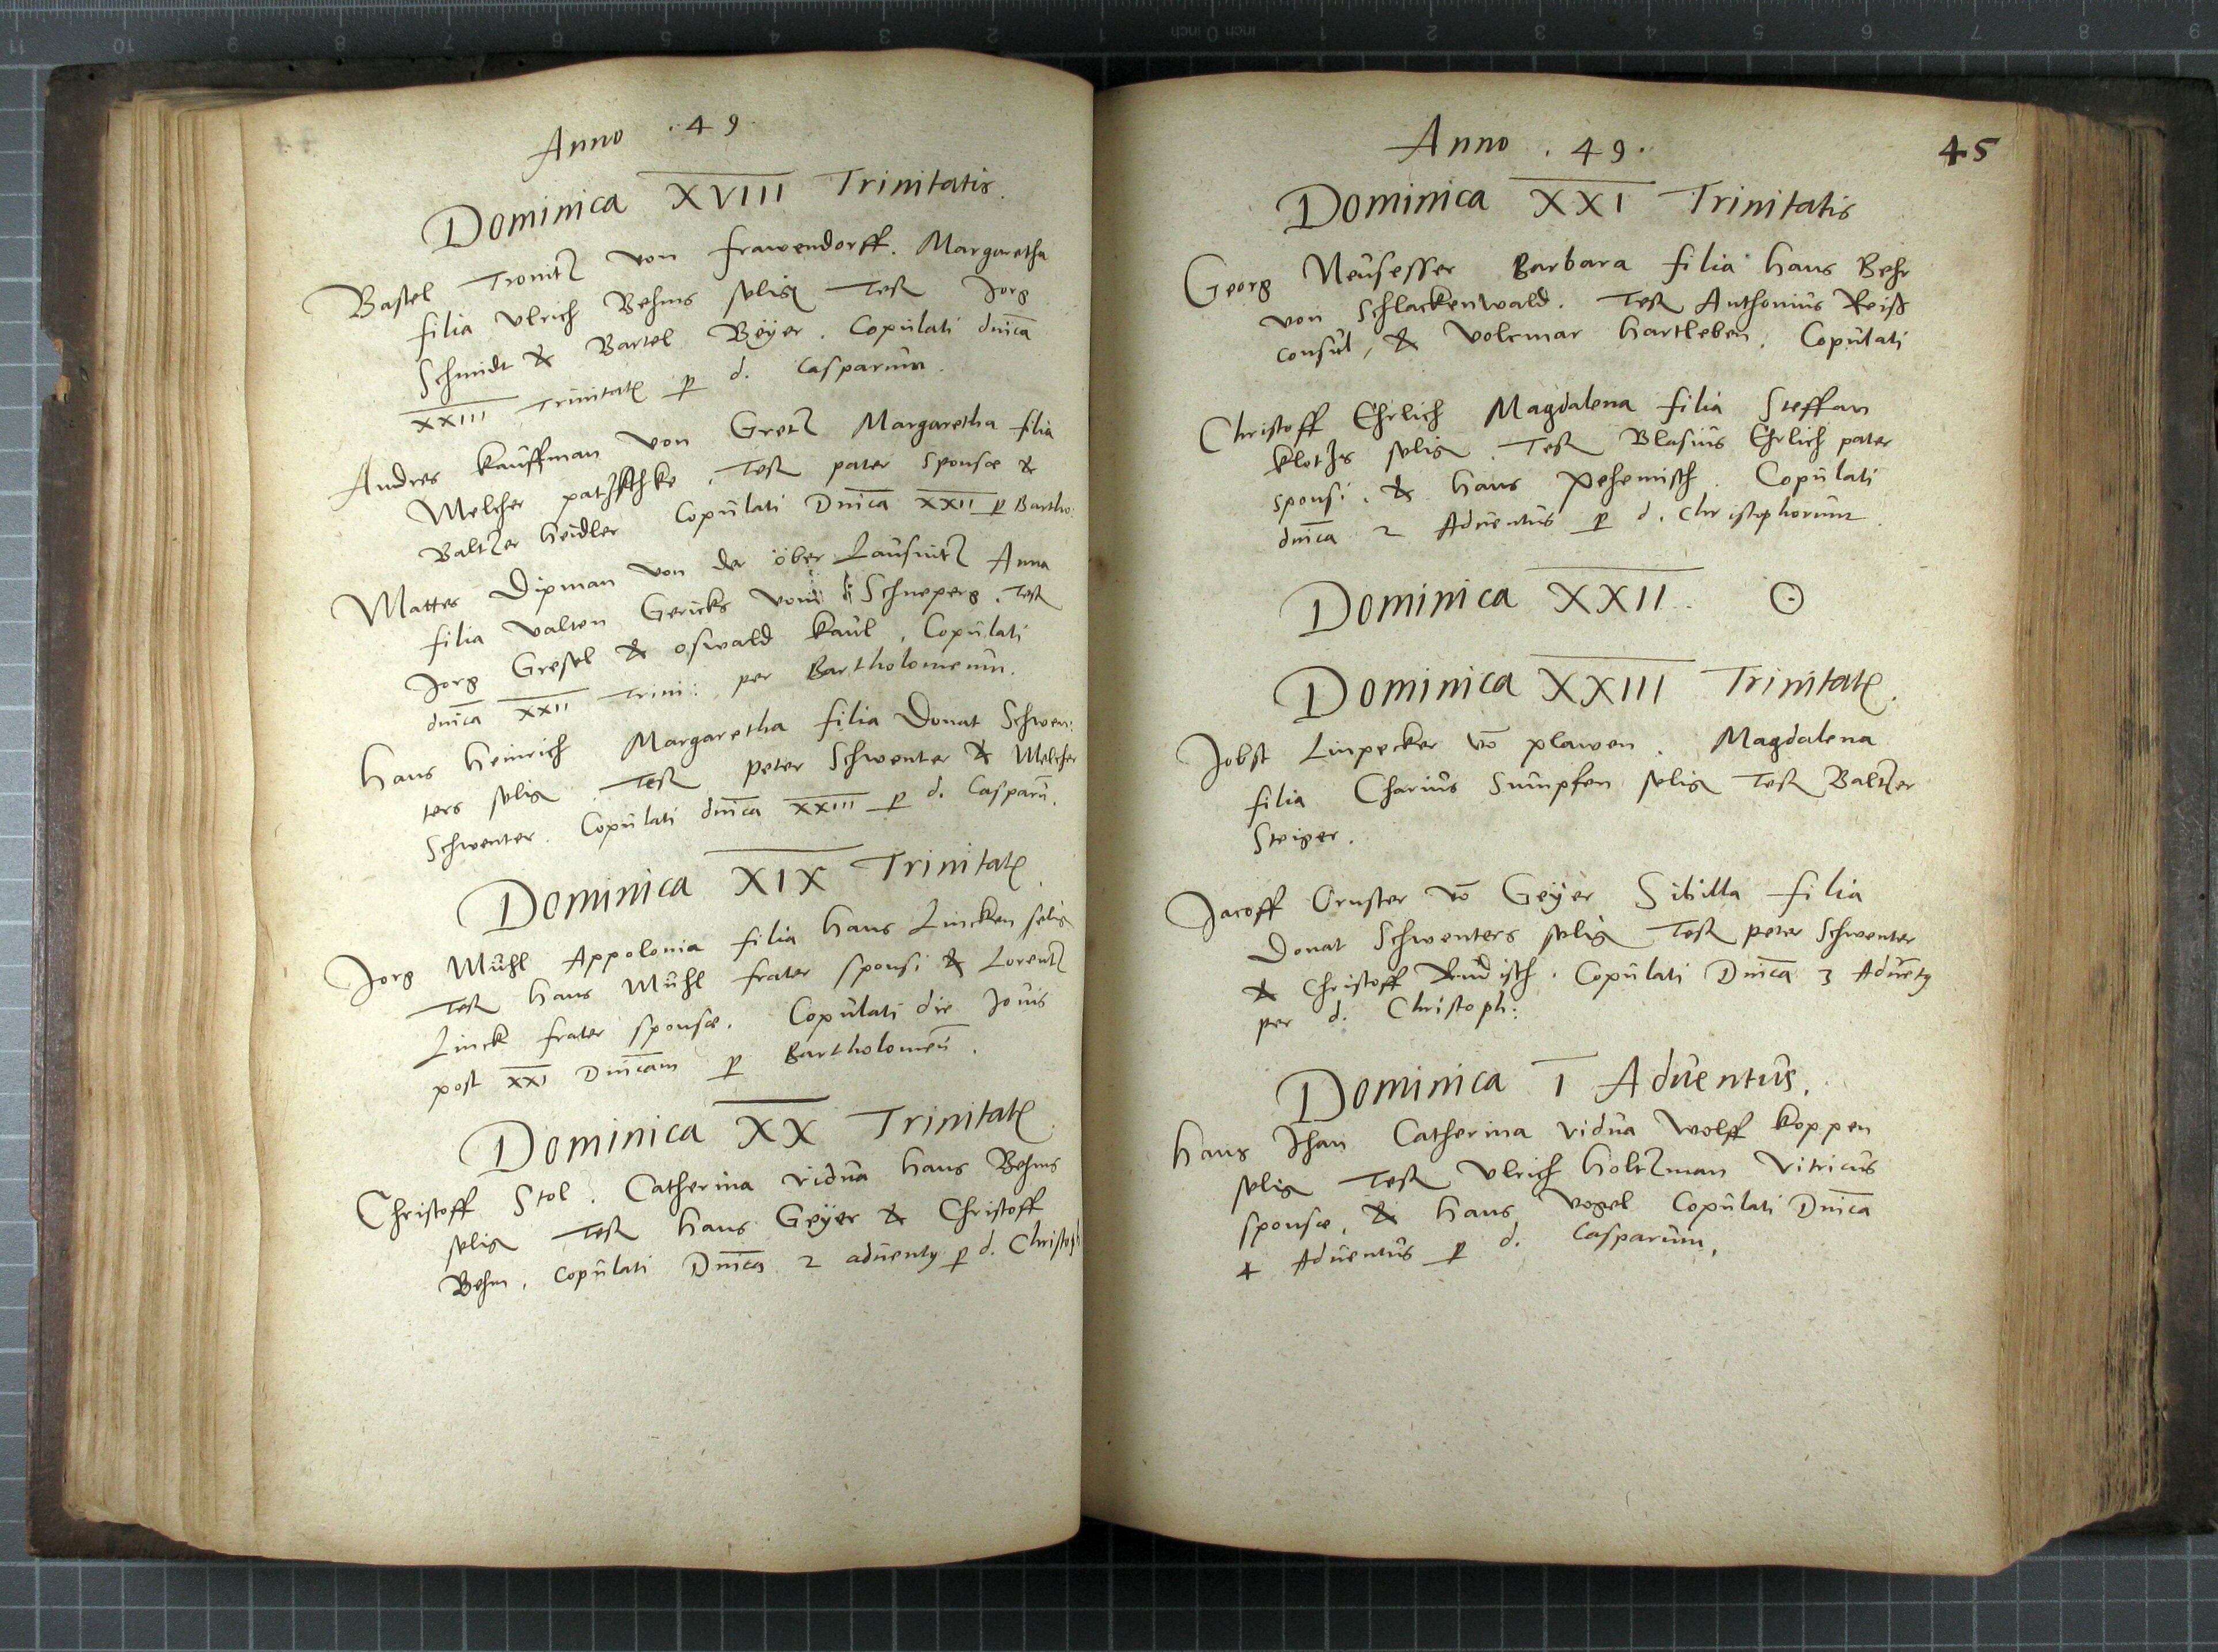 Anno . 49 .
Dominica XVIII Trinitatis.
Bastel Tronitz von frawendorff. Margaretha
filia Ulrich Behms selig Test Jorg
Schmidt & Bartel Beÿer. Copulati dnica
XXIII Trinitat p d. Casparum.
Andres Kauffman von Gretz Margaretha filia
Melcher . Test pater sponsæ &
Baltzer heidler Copulati Dnica XXII p Bartho:
Mattes Dipman von der ober Lausnitz Anna
filia Valten Gericks vom Schneperg. Test
Jorg Gresel & oswald Kaul, Copulati
dnica XXII Trini: per Bartholomeum.
Hans Heinrich Margaretha filia Donat Schwen:
ters selig. Test peter Schwenter & Melcher
Schwenter. Copulati dnica XXIII p d. Casparū.
Dominica XIX Trinitat
Jorg Mühl Appolonia filia Hans Lincken selig
Test Hans Mühl frater sponsi & Lorentz
Linck frater sponsæ. Copulati die Jovis
post XXI Dnicam p Bartholomeū.
Dominica XX Trinitat
Christoff Stol. Catherina vidua Hans Behms
selig Test Hans Geÿer & Christoff
Behm. Copulati Dnica 2 adventy p d. Christoph
Anno . 49 .
45
Dominica XXI Trinitatis
Georg Neusesser Barbara filia Hans Behr
von Schlackenwald. Test Anthonius Reiß
consul, & Volcmar Hartleben. Copulati
Christoff Ehrlich Magdalena filia Steffan
Klotzs selig. Test Blasius Ehrlich pater
sponsi. & Hans Pehemisch. Copulati
dnica 2 Adventus p d. Christophorum.
Dominica XXII.
Dominica XXIII Trinitat.
Jobst Linpecker vō plawen. Magdalena
filia Charius Sumpfen selig Test Baltzer
Steiger.
Jacoff vō Geÿer Sibilla filia
Donat Schwenters selig Test peter Schwenter
& Christoff . Copulati Dnica 3 Adventy
per d. Christoph:
Dominica I Adventus.
Hans Jhan Catherina vidua Wolff Koppen
selig Test Ulrich Holtzman Vitricus
sponsæ, & Hans Vogel Copulati Dnica
4 Adventus p d. Casparum.